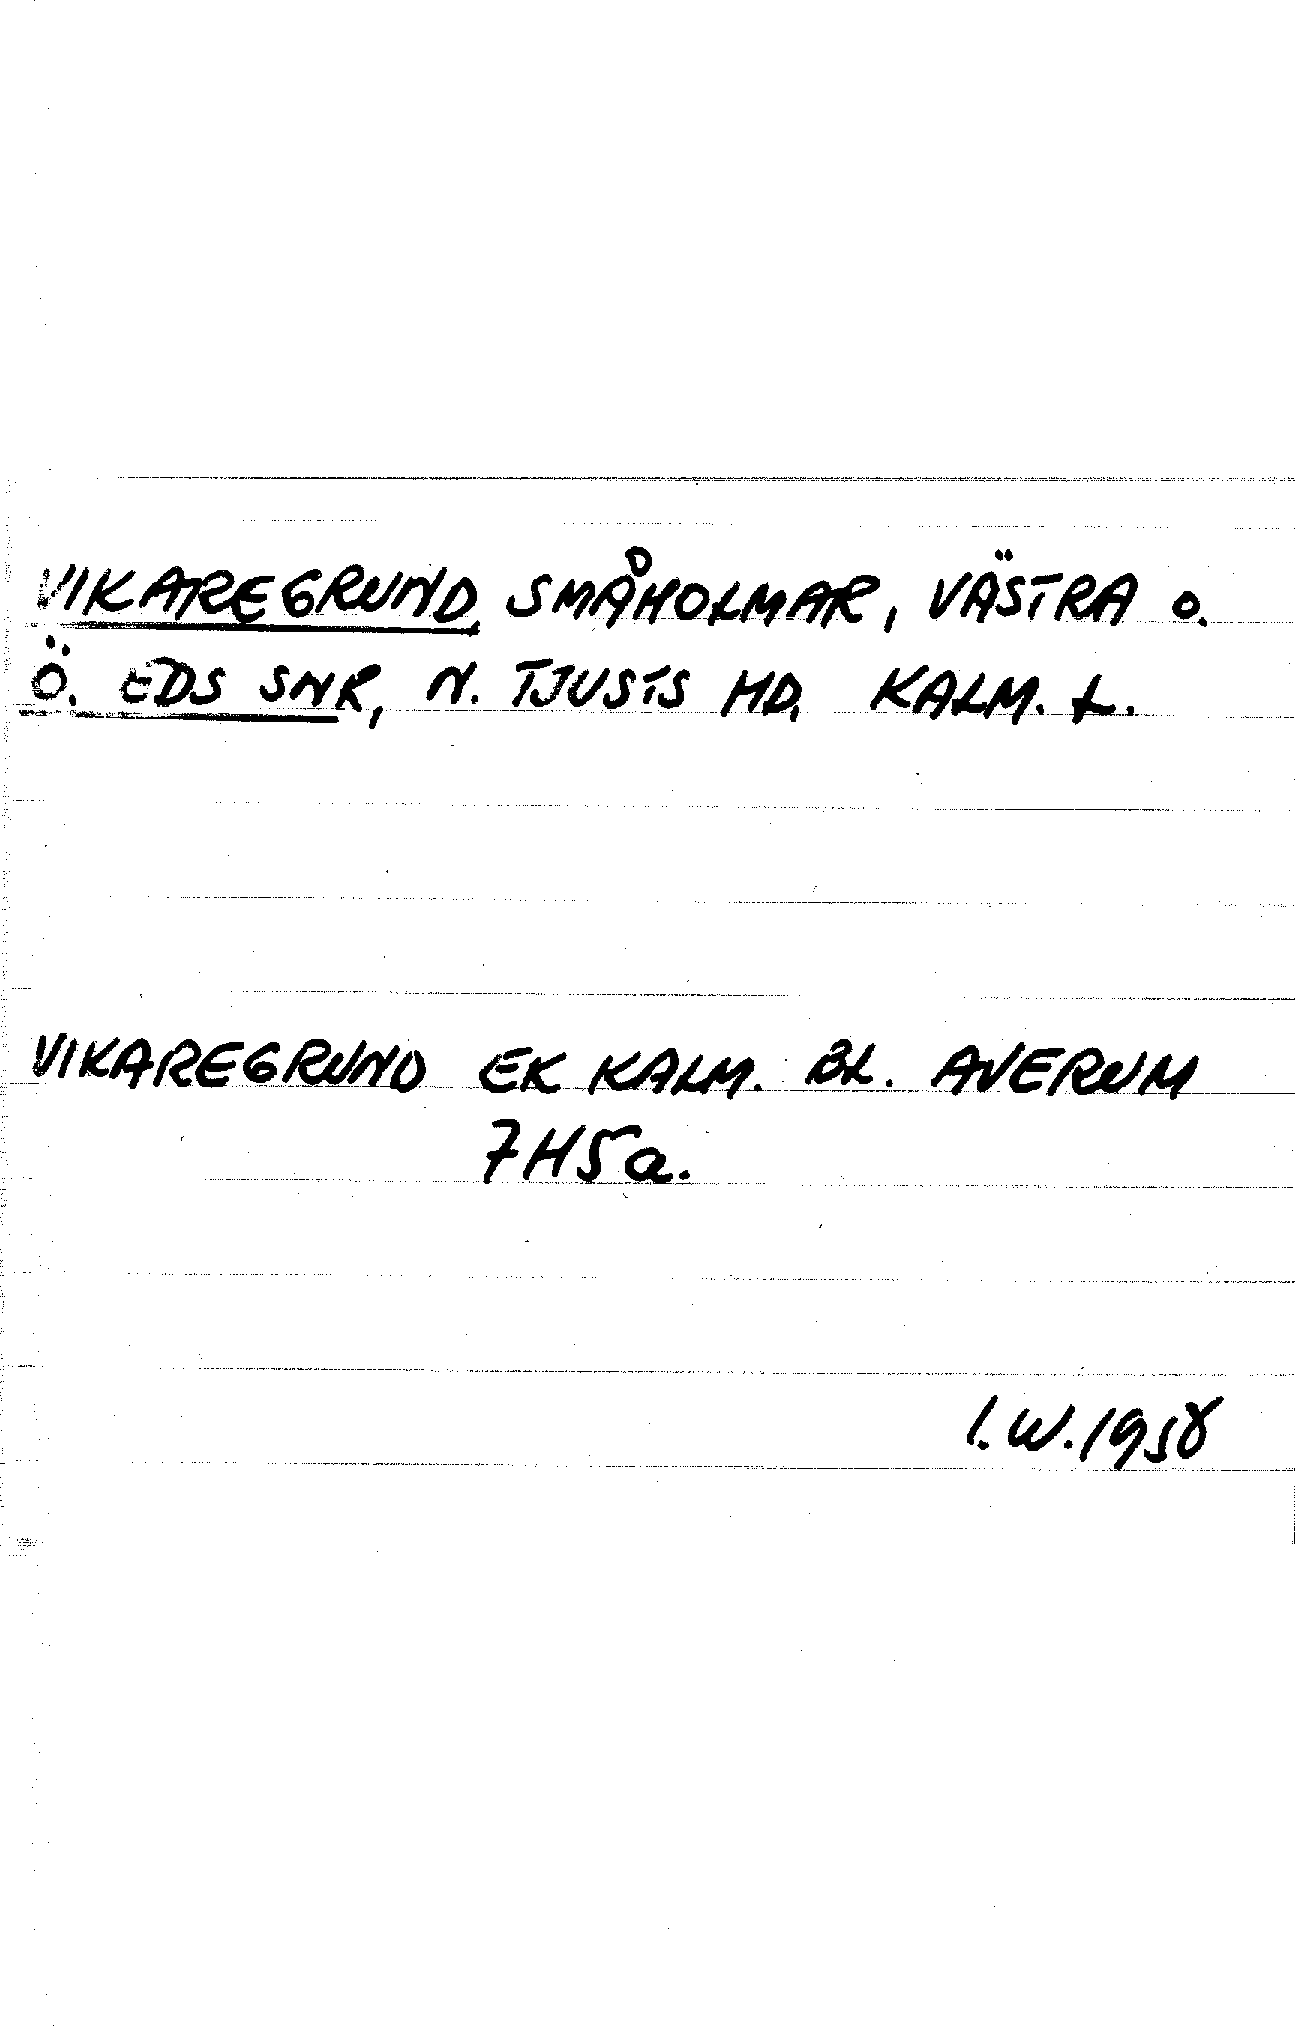 VIKAREGRUND, SMÅHOLMAR, VÄSTRA O.
Ö. EDS SNR, N. TJUSTS HD, KALM. L.
VIKAREGRUND EK KALM. BL. AVERUM
7H5a.
I.W.1958